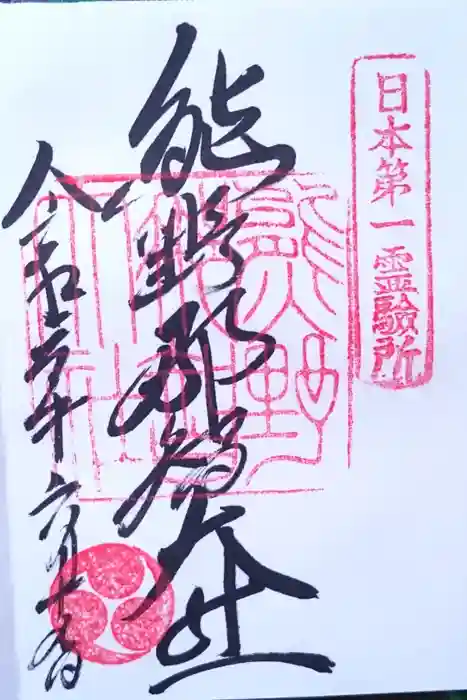 日本第一霊験所
熊野那智大社
令和二年六月
熊野
那智
大社